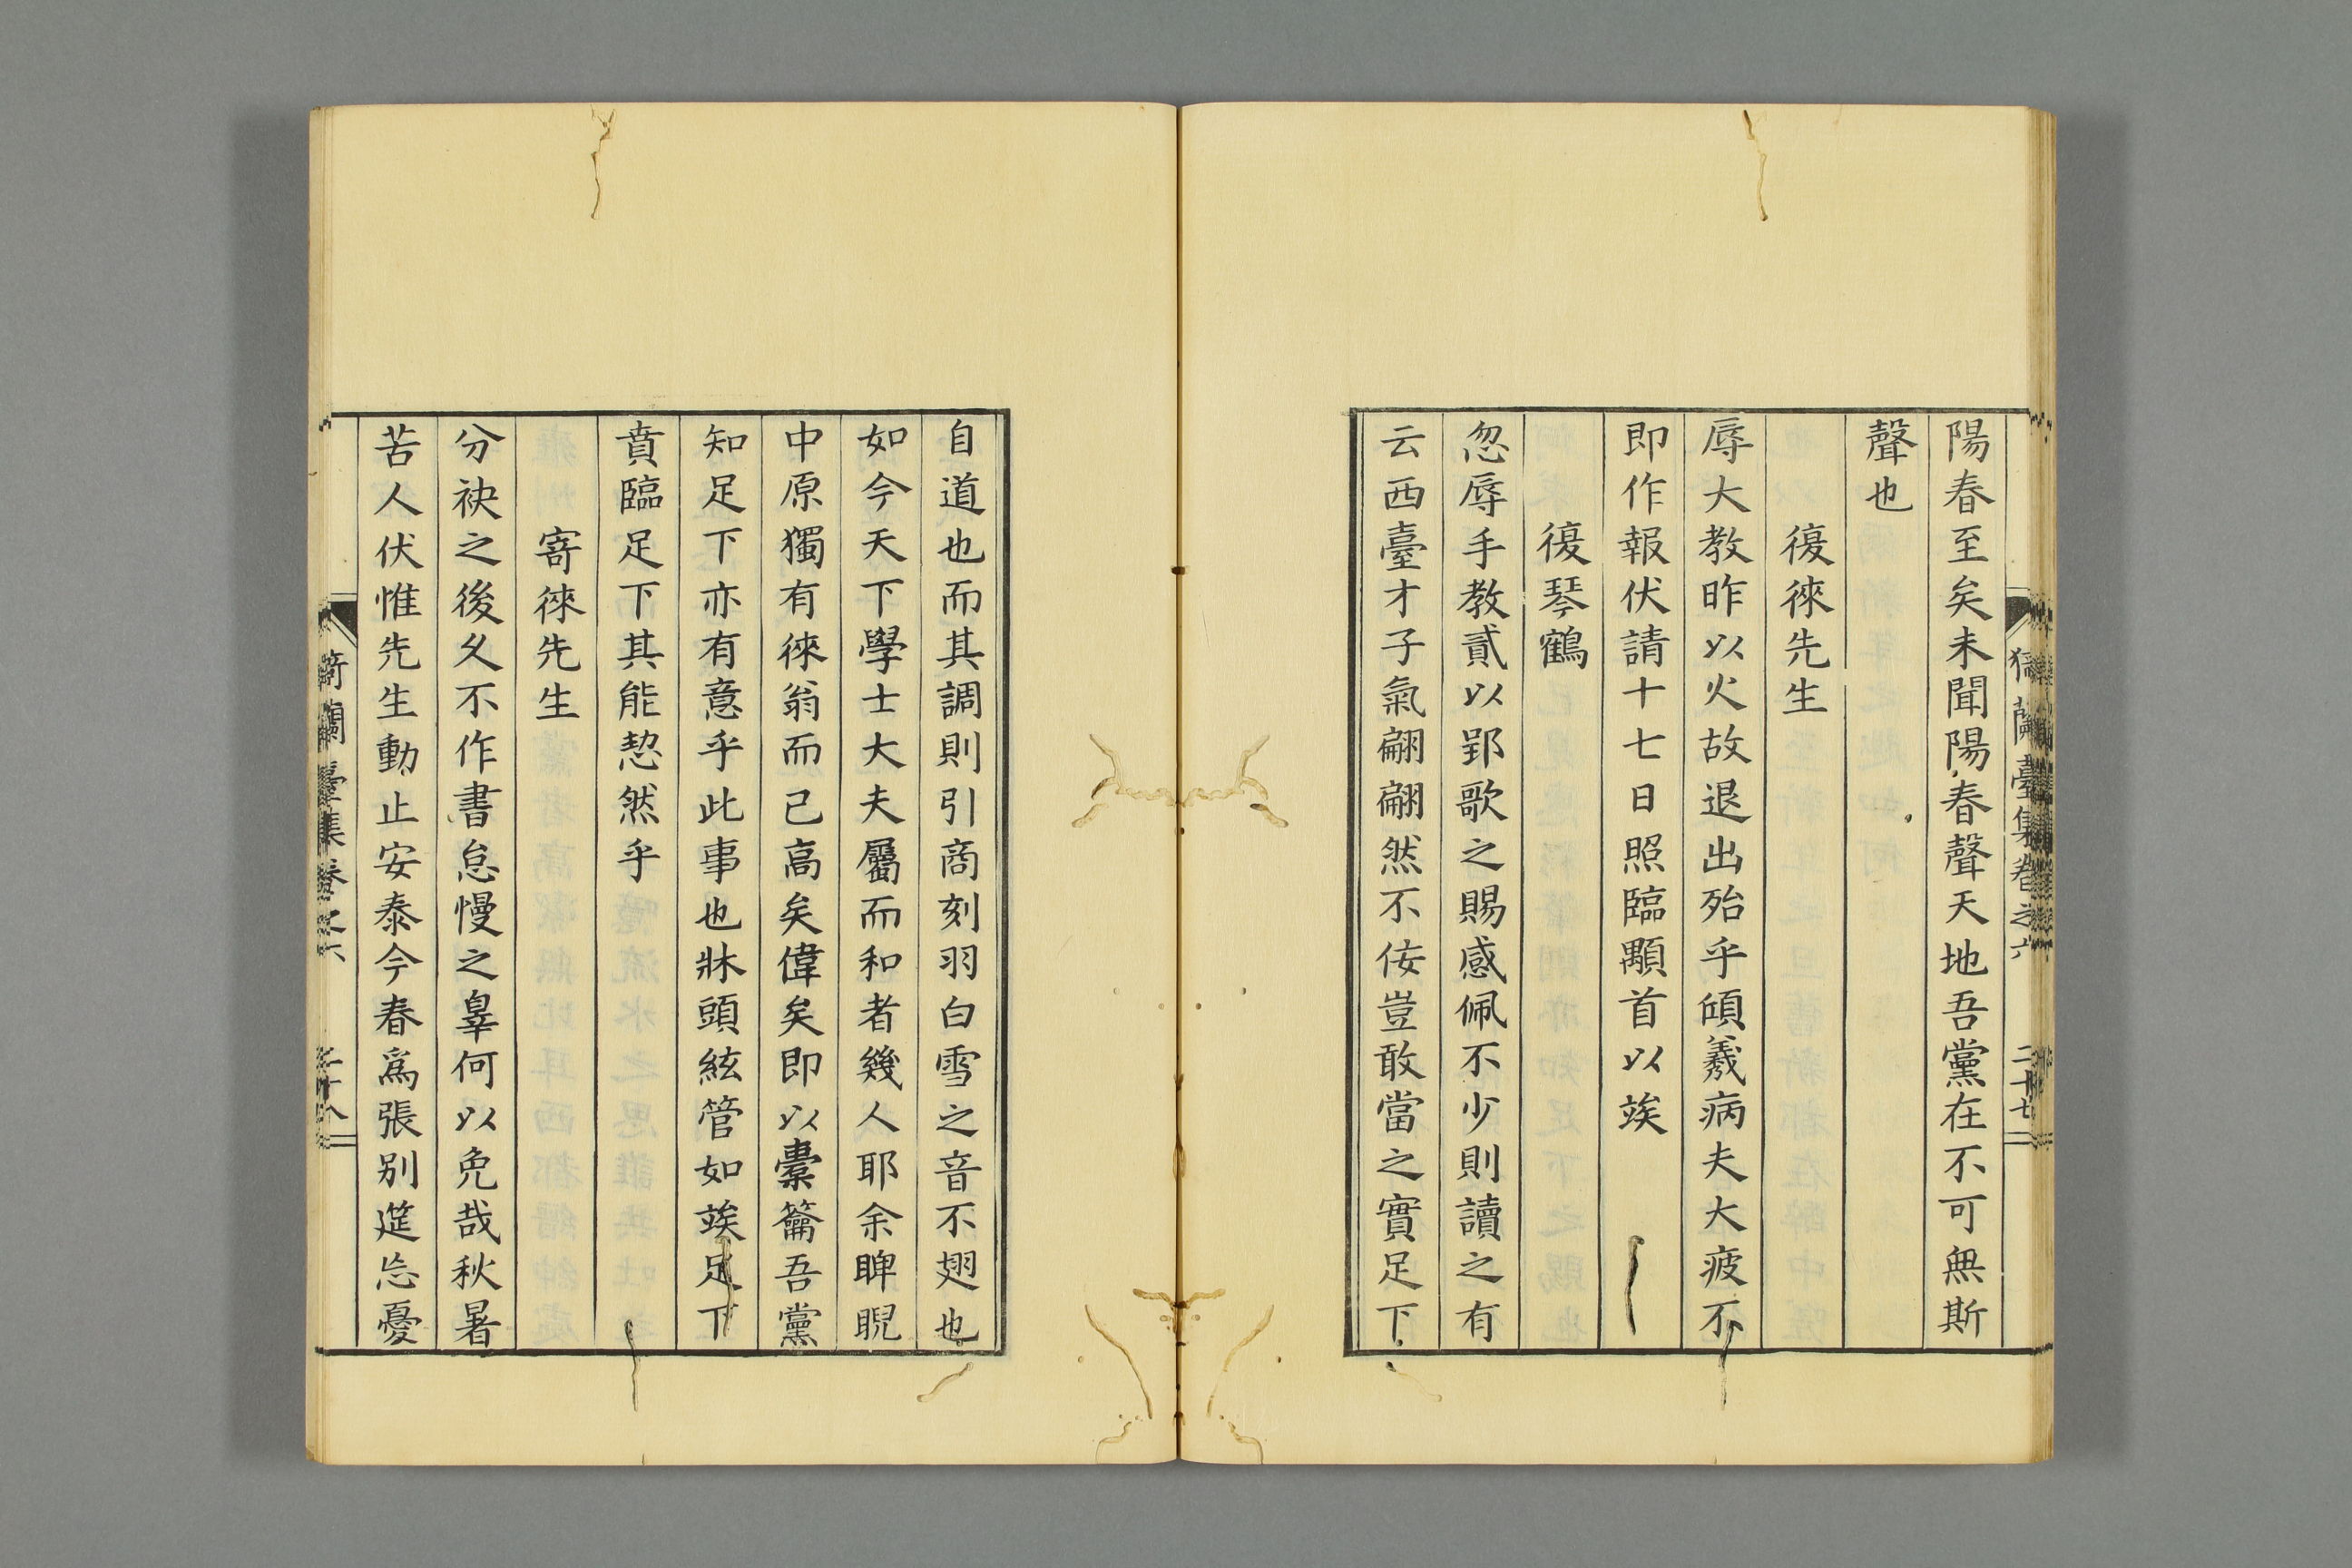 陽春至矣未聞陽春聲天地吾黨在不可無斯
聲也
復徠先生
辱大教昨以火故退出殆乎頄羲病夫大疲不
即作報伏請十七日照臨顒首以竢
復琴鶴
忽辱手教貳以郢歌之賜感佩不少則讀之有
云西臺才子氣翩翩然不佞豈敢當之實足下
自道也而其調則引商刻羽白雪之音不翅也
如今天下學士大夫屬而和者幾人耶余睥睨
中原獨有徠翁而已高矣偉矣即以橐籥吾黨
知足下亦有意乎此事也牀頭絃管如竢足下
賁臨足下其能恝然乎
寄徠先生
分袂之後久不作書怠慢之辠何以免哉秋暑
苦人伏惟先生動止安泰今春爲張別筵忘憂
蘭臺集卷之六 二十七
蘭臺集卷之六 二十八